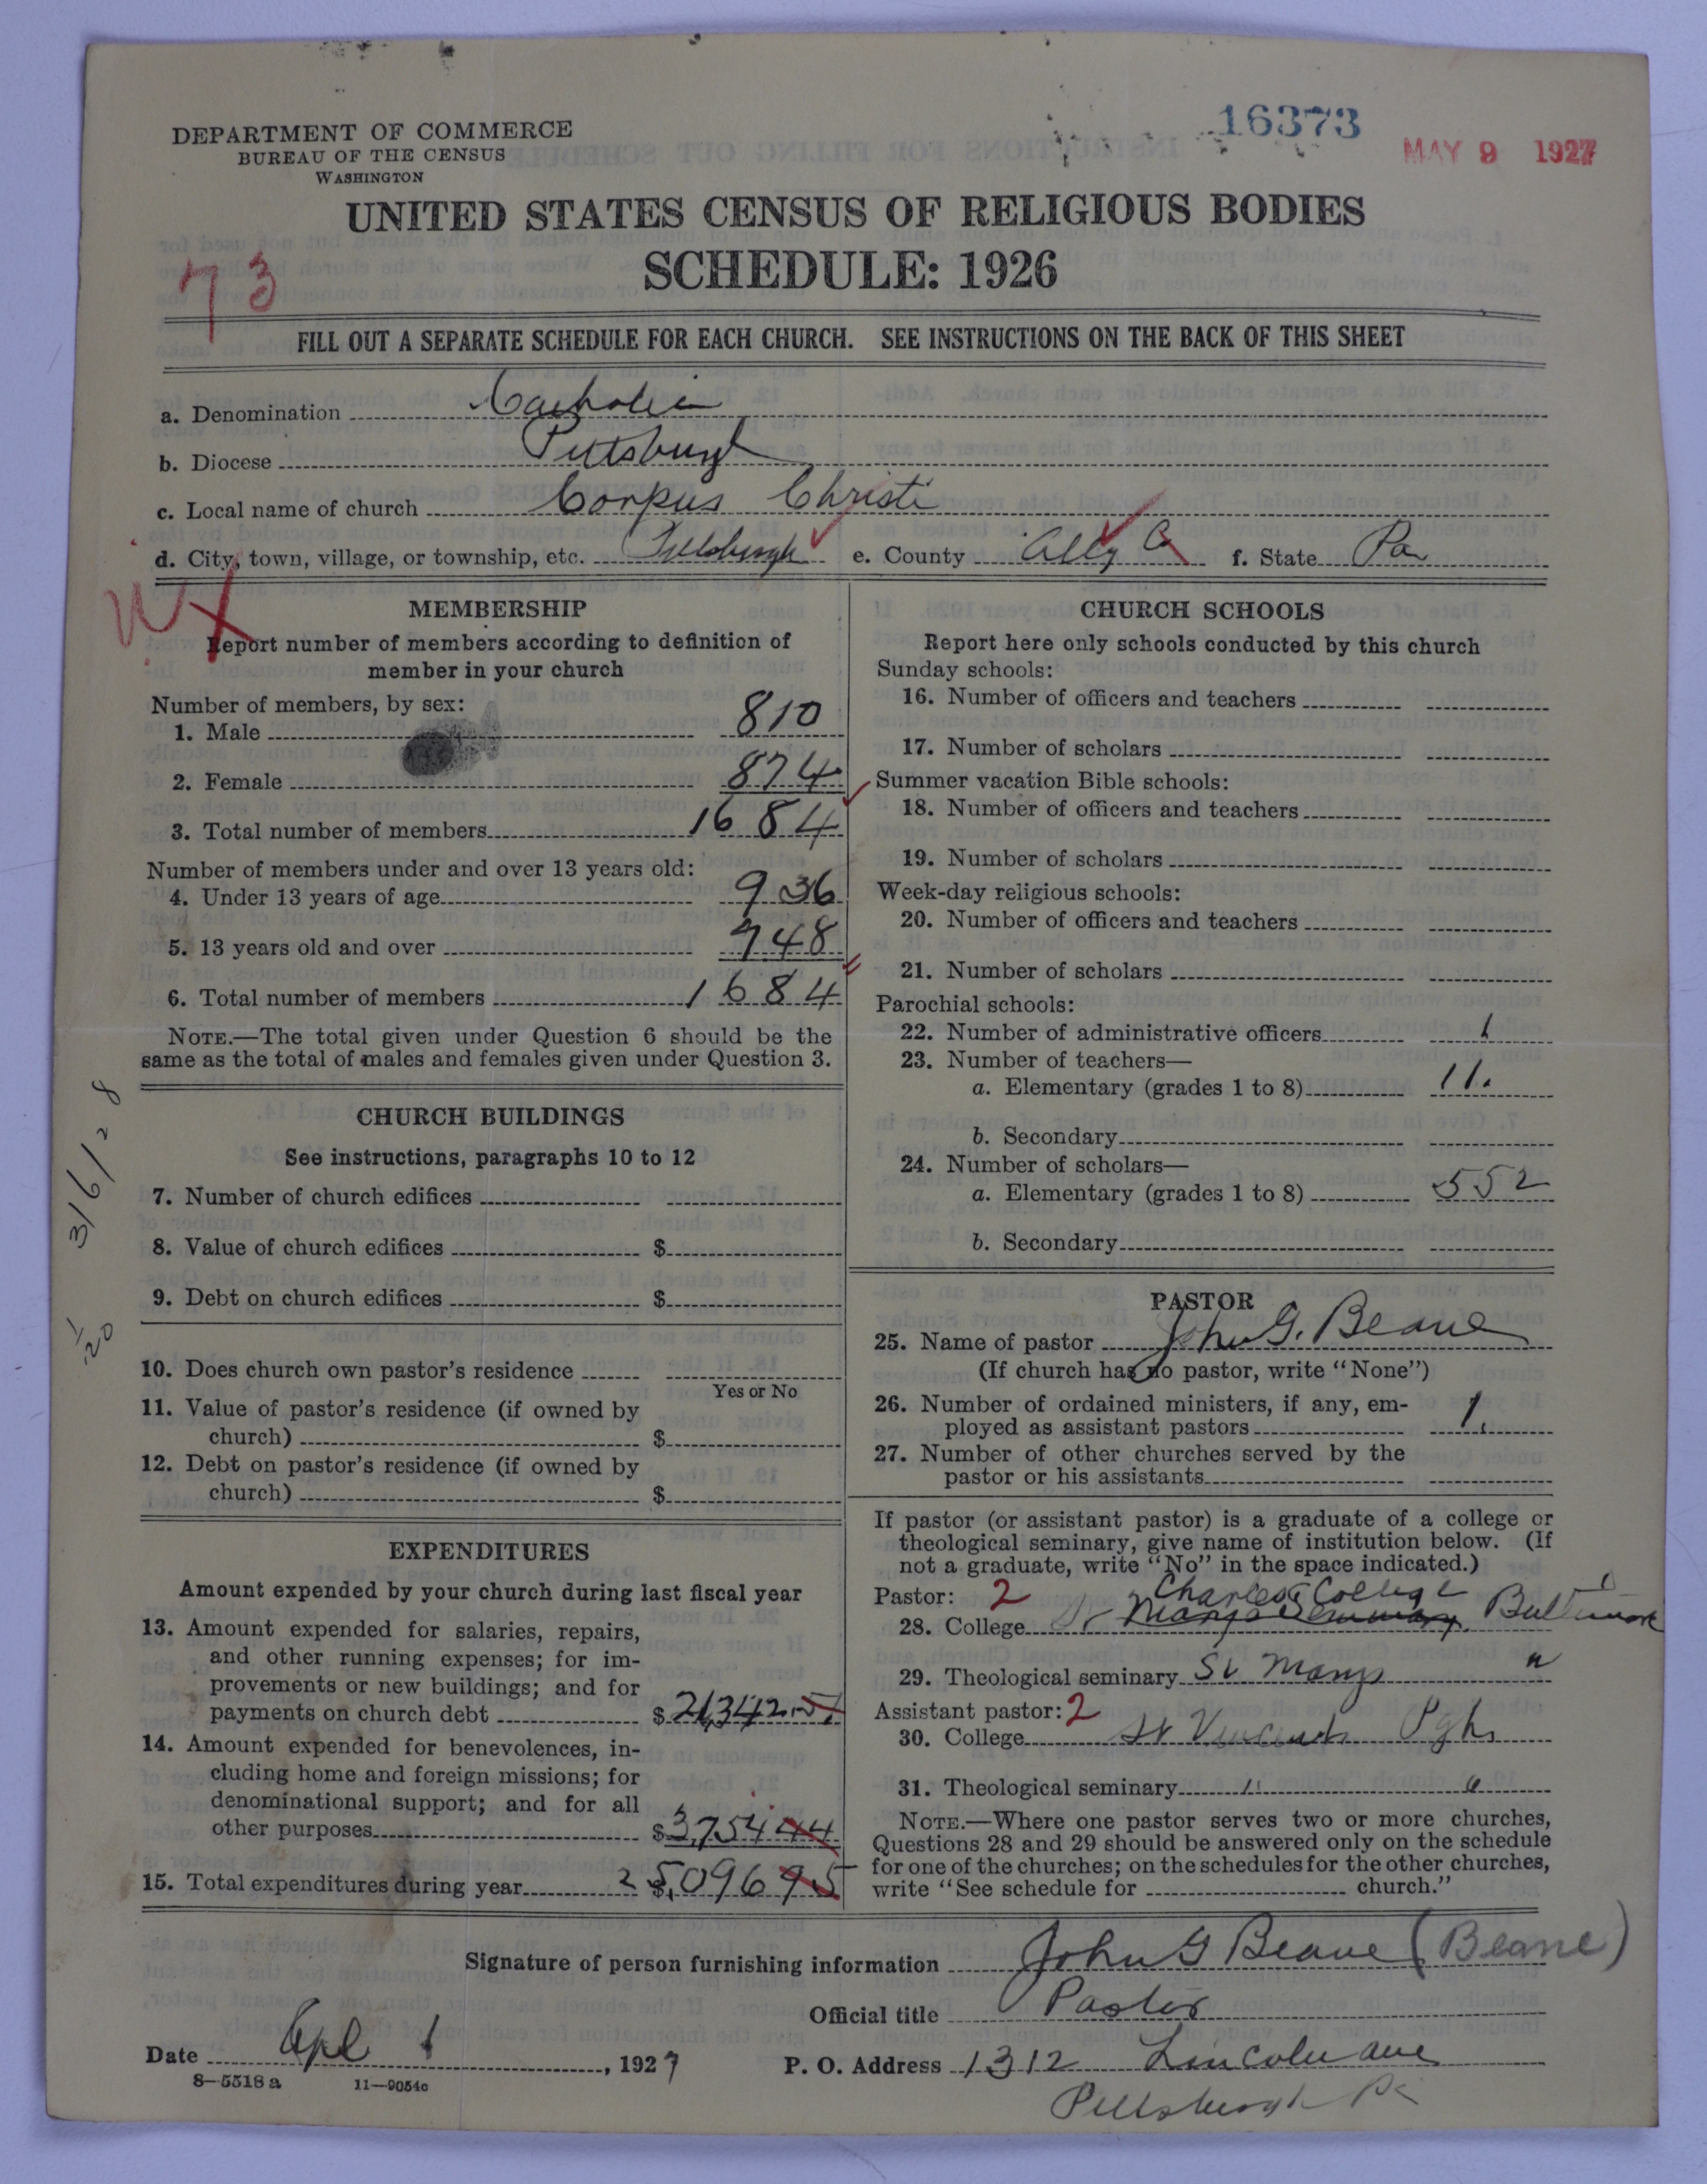 16373
MAY 9 1927
DEPARTMENT OF COMMERCE
BUREAU OF THE CENSUS
WASHINGTON
UNITED STATES CENSUS OF RELIGIOUS BODIES
SCHEDULE: 1926
73
FILL OUT A SEPARATE SCHEDULE FOR EACH CHURCH. SEE INSTRUCTIONS ON THE BACK OF THIS SHEET
a. Denomination Catholic
b. Diocese Pittsburgh
c. Local name of church Corpus Christi
d. City, town, village, or township, etc. Pittsburgh e. County Ally Co f. State Pa
MEMBERSHIP
Report number of members according to definition of
member in your church
Number of members, by sex:
1. Male 810
2. Female 874
3. Total number of members 1684
Number of members under and over 13 years old:
4. Under 13 years of age 936
5. 13 years old and over 748
6. Total number of members 1684
NOTE.—The total given under Question 6 should be the
same as the total of males and females given under Question 3.
CHURCH BUILDINGS
See instructions, paragraphs 10 to 12
7. Number of church edifices
8. Value of church edifices $
9. Debt on church edifices $
10. Does church own pastor's residence
Yes or No
11. Value of pastor's residence (if owned by
church) $
12. Debt on pastor's residence (if owned by
church) $
3/6/28
EXPENDITURES
Amount expended by your church during last fiscal year
13. Amount expended for salaries, repairs,
and other running expenses; for im-
provements or new buildings; and for
payments on church debt $ 21,342.51
14. Amount expended for benevolences, in-
cluding home and foreign missions; for
denominational support; and for all
other purposes $ 3,754 44
15. Total expenditures during year $ 25,096 95
CHURCH SCHOOLS
Report here only schools conducted by this church
Sunday schools:
16. Number of officers and teachers
17. Number of scholars
Summer vacation Bible schools:
18. Number of officers and teachers
19. Number of scholars
Week-day religious schools:
20. Number of officers and teachers
21. Number of scholars
Parochial schools:
22. Number of administrative officers 1
23. Number of teachers—
a. Elementary (grades 1 to 8) 11.
b. Secondary
24. Number of scholars—
a. Elementary (grades 1 to 8) 552
b. Secondary
PASTOR
25. Name of pastor John G. Beane
(If church has no pastor, write "None")
26. Number of ordained ministers, if any, em-
ployed as assistant pastors 1.
27. Number of other churches served by the
pastor or his assistants
If pastor (or assistant pastor) is a graduate of a college or
theological seminary, give name of institution below. (If
not a graduate, write "No" in the space indicated.)
Pastor: 2 Charles College
28. College St Marys Seminary. Baltimore
29. Theological seminary St Marys "
Assistant pastor: 2
30. College St Vincents Pgh
31. Theological seminary " "
NOTE.—Where one pastor serves two or more churches,
Questions 28 and 29 should be answered only on the schedule
for one of the churches; on the schedules for the other churches,
write "See schedule for church."
Signature of person furnishing information John G Beane (Beane)
Official title Pastor
Date Apl 1, 1927 P. O. Address 1312 Lincoln ave
Pittsburgh Pa
8-5518 a 11-9054c